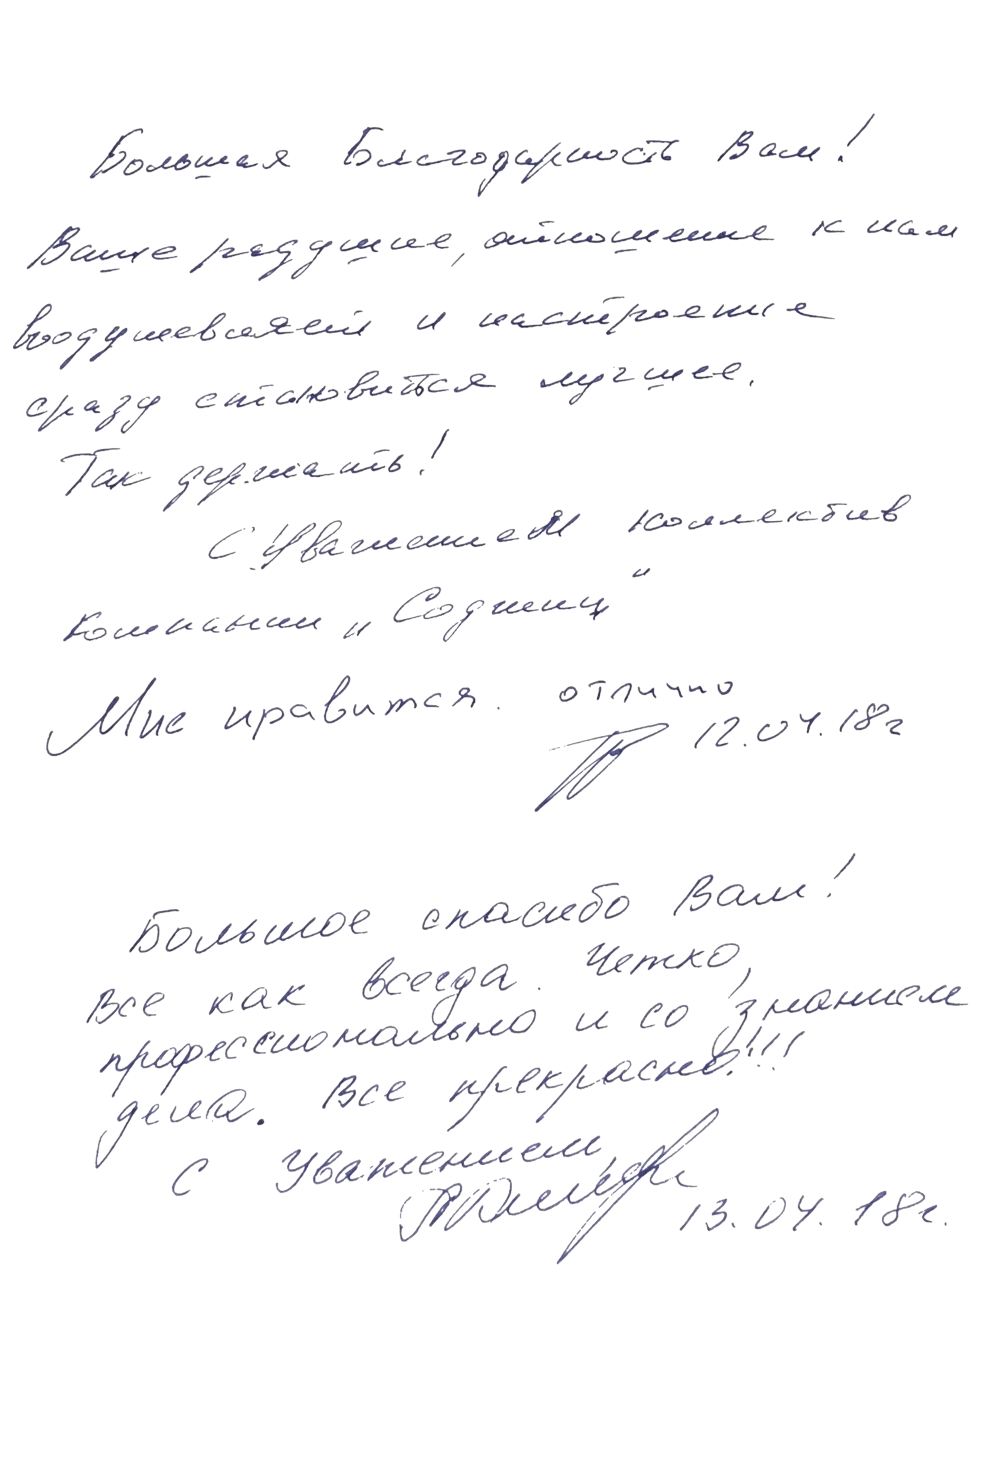 Большая Благодарность Вам!
Ваше радушие, отношение к нам
воодушевляет и настроение
сразу становиться лучшее.
Так держать!
С Уважением коллектив
компании
Мне нравится. отлично
12.04.18г
Большое спасибо Вам!
Все как всегда. Четко,
профессионально и со знанием
дела. Все прекрасно!!!
С Уважением,
13.04.18г.